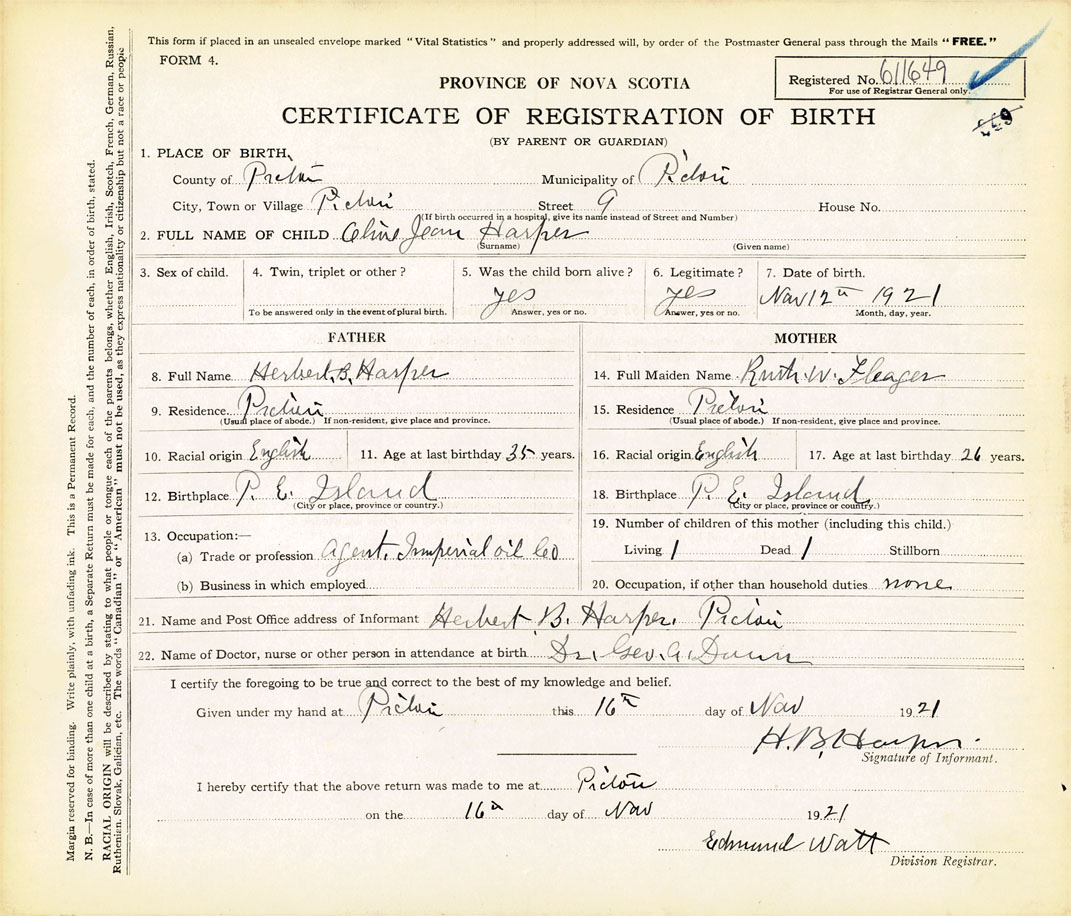 This form if placed in an unsealed envelope marked "Vital Statistics" and properly addressed will, by order of the Postmaster General pass through the Mails "FREE."
FORM 4.
Registered No. 611649
For use of Registrar General only.
PROVINCE OF NOVA SCOTIA
CERTIFICATE OF REGISTRATION OF BIRTH
(BY PARENT OR GUARDIAN)
1. PLACE OF BIRTH,
County of Pictou Municipality of Pictou
City, Town or Village Pictou Street 9 House No.
(If birth occurred in a hospital, give its name instead of Street and Number)
2. FULL NAME OF CHILD Olive Jean Harper
(Surname) (Given name)
3. Sex of child. 4. Twin, triplet or other? 5. Was the child born alive? 6. Legitimate? 7. Date of birth.
yes yes Nov 12th 1921
To be answered only in the event of plural birth. Answer, yes or no. Answer, yes or no. Month, day, year.
FATHER
8. Full Name Herbert B. Harper
9. Residence Pictou
(Usual place of abode.) If non-resident, give place and province.
10. Racial origin English 11. Age at last birthday 35 years.
12. Birthplace P. E. Island
(City or place, province or country.)
13. Occupation:—
(a) Trade or profession Agent. Imperial oil Co
(b) Business in which employed
MOTHER
14. Full Maiden Name Ruth W.
15. Residence Pictou
(Usual place of abode.) If non-resident, give place and province.
16. Racial origin English 17. Age at last birthday 26 years.
18. Birthplace P. E. Island
(City or place, province or country.)
19. Number of children of this mother (including this child.)
Living 1 Dead 1 Stillborn
20. Occupation, if other than household duties none
21. Name and Post Office address of Informant Herbert B. Harper. Pictou
22. Name of Doctor, nurse or other person in attendance at birth Dr. Geo. A. Dunn
I certify the foregoing to be true and correct to the best of my knowledge and belief.
Given under my hand at Pictou this 16th day of Nov 1921
H. B. Harper.
Signature of Informant.
I hereby certify that the above return was made to me at Pictou
on the 16th day of Nov 1921
Edmund Watt
Division Registrar.
Margin reserved for binding. Write plainly, with unfading ink. This is a Permanent Record.
N. B.—In case of more than one child at a birth, a Separate Return must be made for each, and the number of each, in order of birth, stated.
RACIAL ORIGIN will be described by stating to what people or tongue each of the parents belongs, whether English, Irish, Scotch, French, German, Russian,
Ruthenian, Slovak, Galician, etc. The words "Canadian" or "American" must not be used, as they express nationality or citizenship but not a race or people